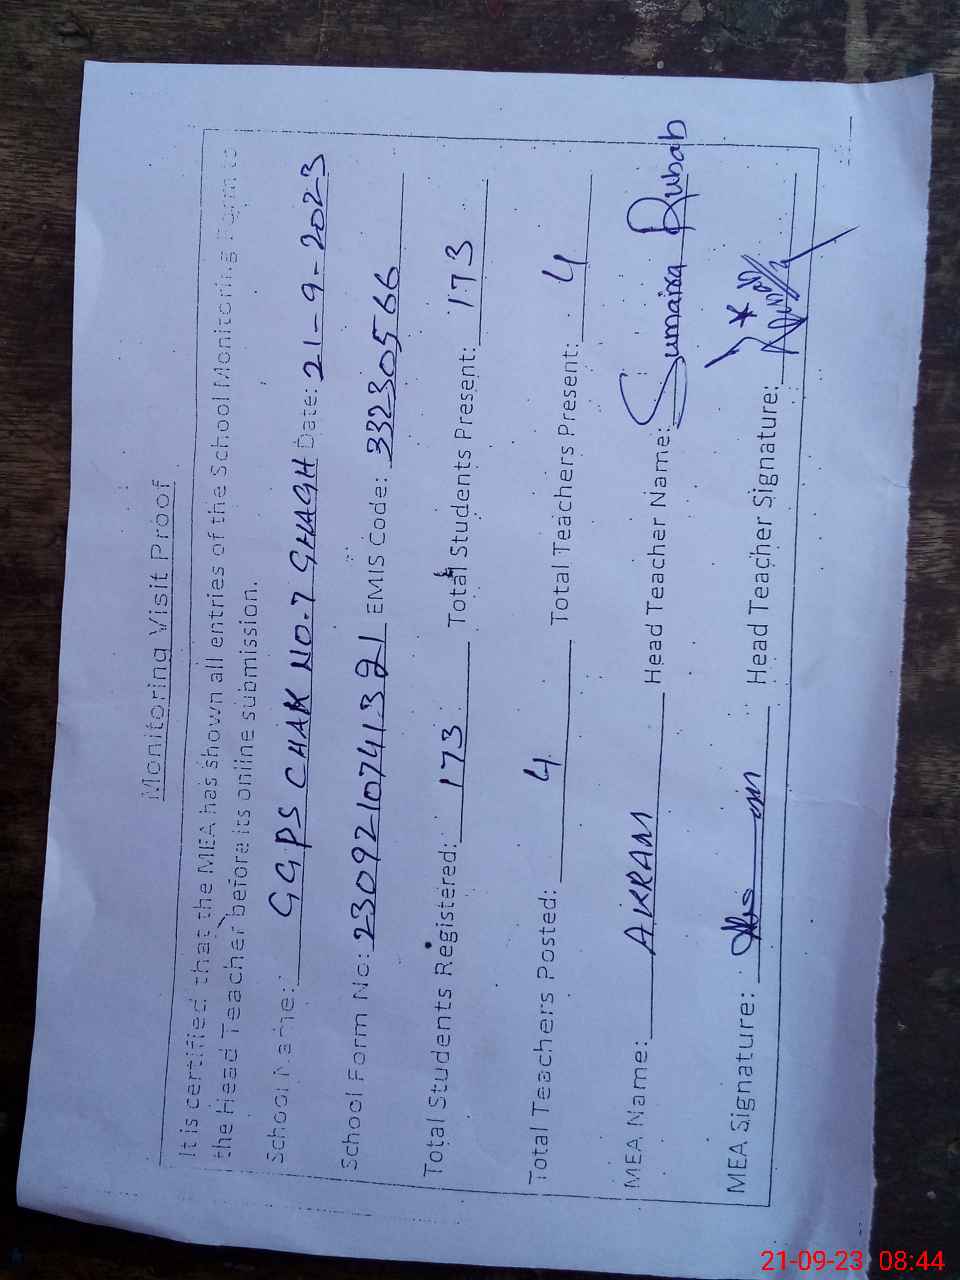 Monitoring Visit Proof
It is certified that the MEA has shown all entries of the School Monitoring Form to
the Head Teacher before its online submission.
School Name: GGPS CHAK NO.7 GHAGH Date: 21-9-2023
School Form No: 2309210741321 EMIS Code: 33230566
Total Students Registered: 173 Total Students Present: 173
Total Teachers Posted: 4 Total Teachers Present: 4
MEA Name: AKRAM Head Teacher Name: Sumaira Rubab
MEA Signature: Head Teacher Signature:
21-09-23 08:44